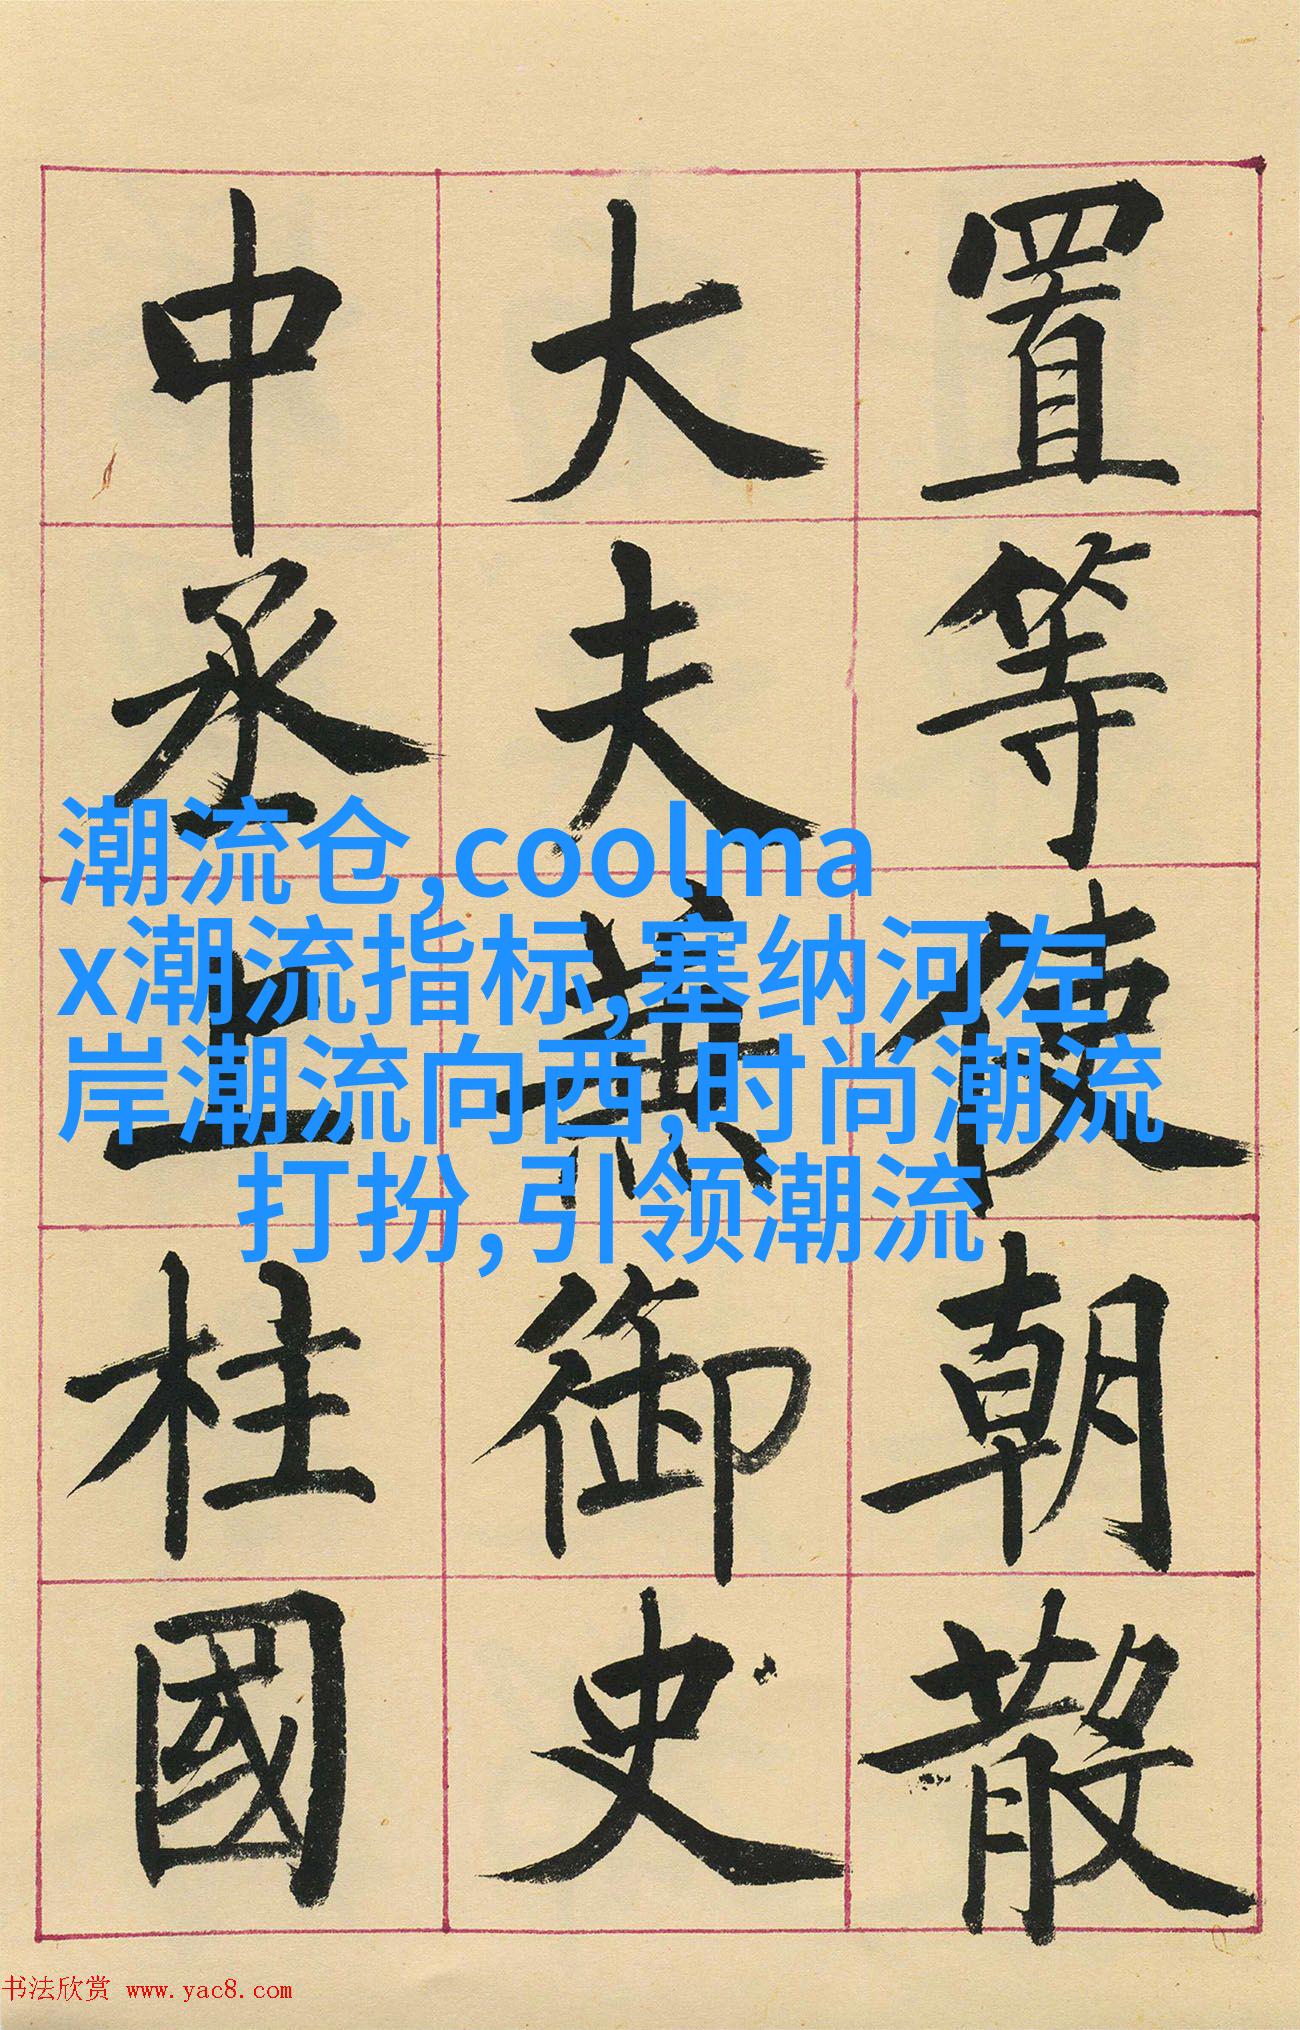 置等使朝散
大夫兼御史
中丞上柱國
潮流仓,coolma
x潮流指标,塞纳河左
岸潮流向西,时尚潮流
打扮,引领潮流
书法欣赏 www.yac8.com